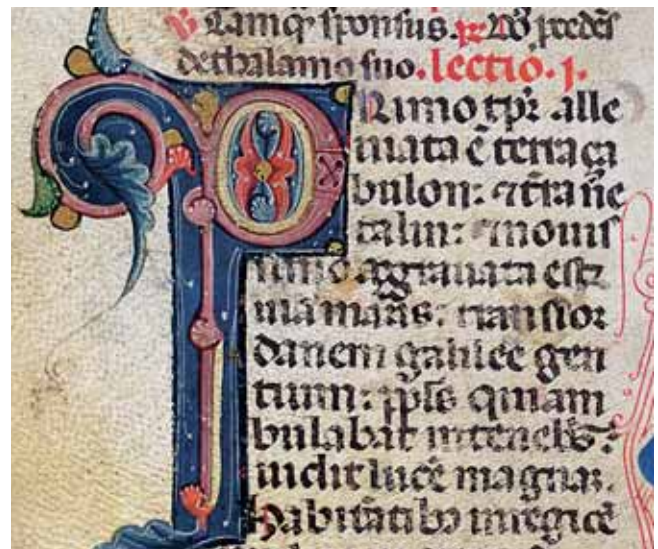 Tamq̄ sponsus. ꝶ Dn̄s p̄cedēs
de thalamo suo. lectio. j.
PRimo tp̄r alle
uiata ē terra ça
bulon: ⁊ t̄ra ne
talim: ⁊ nouis
simo aggrauata est
uia maris: trans ior
danem galilee gen
tium: ppl̄s qui am
bulabat in tenebr̄:
uidit lucē magnā.
habitātibȝ in regiōē